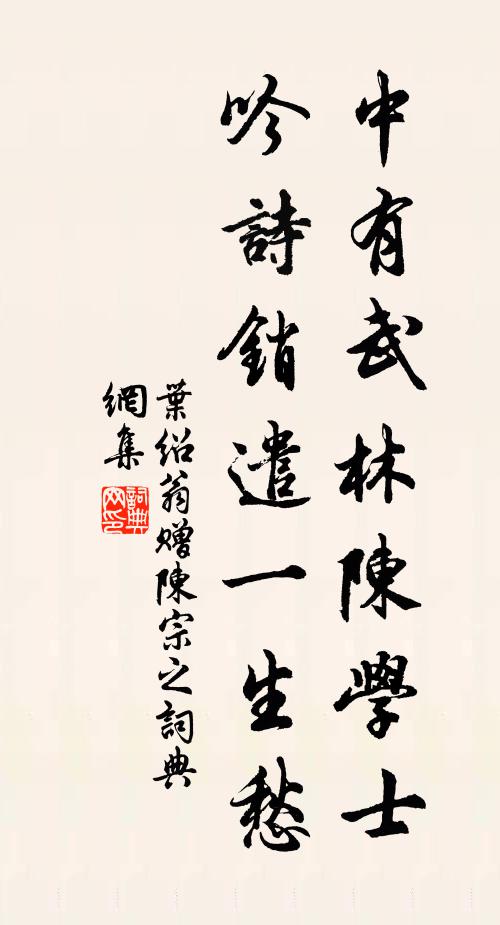 中有武林陳學士
吟詩銷遣一生愁
葉紹翁贈陳宗之詞典
網集
詞典网印